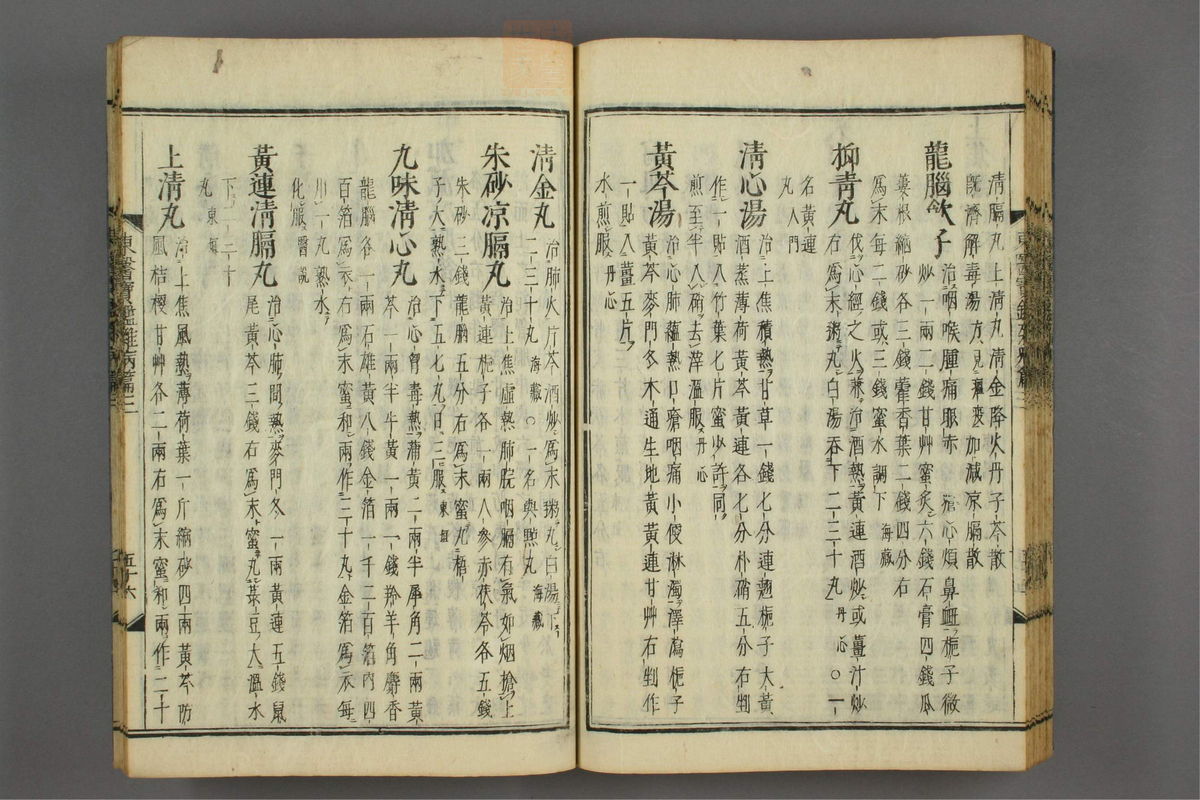 清膈丸上清丸清金降火丹子芩散
既濟解毒湯方見加減凉膈散
龍腦飮子 治咽喉腫痛眼赤口瘡心煩鼻衄梔子微
炒一兩二錢甘艸蜜炙六錢石膏四錢瓜
蔞根縮砂各三錢藿香葉二錢四分右
爲末每二錢或三錢蜜水調下 海藏
抑青丸 伐心經之火兼治酒熱黃連酒炒或薑汁炒
右爲末糊丸白湯呑下二三十丸 丹心 ○一
名黃連
丸 入門
清心湯 治上焦積熱甘草一錢七分連翹梔子大黃
酒蒸薄荷黃芩黃連各七分朴硝五分右剉
作一貼入竹葉七片蜜少許同
煎至半入硝去滓溫服 丹心
黃芩湯 治心肺蘊熱口瘡咽痛小便淋濁澤瀉梔子
黃芩麥門冬木通生地黃黃連甘艸右剉作
一貼入薑五片
水煎服 丹心
清金丸 治肺火片芩酒炒爲末糊丸白湯下
二三十丸 海藏 ○一名與點丸 海藏
朱砂凉膈丸 治上焦虛熱肺脘咽膈有氣如烟搶上
黃連梔子各一兩人參赤茯苓各五錢
朱砂三錢龍腦五分右爲末蜜丸梧
子大熱水下五七丸日三服 東垣
九味清心丸 治心胷毒熱蒲黃二兩半犀角二兩黃
芩一兩半牛黃一兩二錢羚羊角麝香
龍腦各一兩石雄黃八錢金箔一千二百箔內四
百箔爲衣右爲末蜜和兩作三十丸金箔爲衣每
一丸熱水
化服 醫說
黃連清膈丸 治心肺間熱麥門冬一兩黃連五錢鼠
尾黃芩三錢右爲末蜜丸菉豆大溫水
下二三十
丸 東垣
上清丸 治上焦風熱薄荷葉一斤縮砂四兩黃芩防
風桔梗甘艸各二兩右爲末蜜和兩作二十
東醫寶鑑雜病篇三
五十六